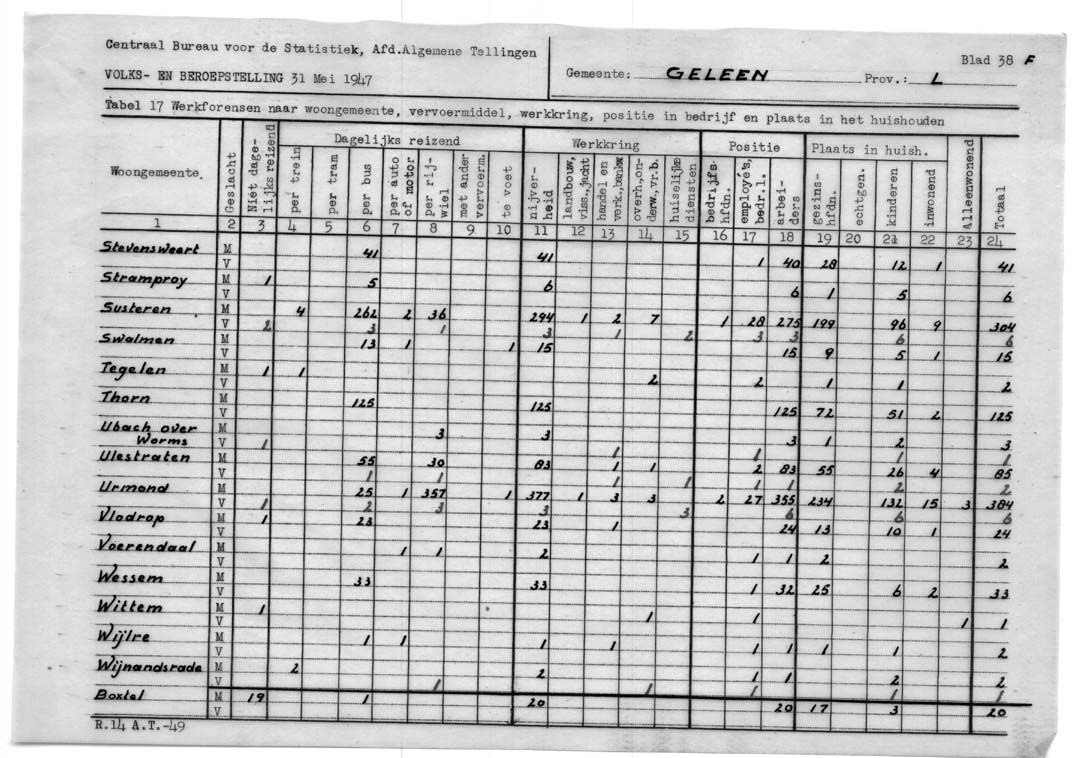 Centraal Bureau voor de Statistiek, Afd.Algemene Tellingen
VOLKS- EN BEROEPSTELLING 31 Mei 1947
Gemeente: GELEEN Prov.: L
Blad 38 F
Tabel 17 Werkforensen naar woongemeente, vervoermiddel, werkkring, positie in bedrijf en plaats in het huishouden
Woongemeente. Geslacht Niét dage-lijks reizend Dagelijks reizend Werkkring Positie Plaats in huish. Alleenwonend Totaal
per trein per tram per bus per auto of motor per rij-wiel met ander vervoerm. te voet nijver-heid landbouw, viss.,jacht handel en verk.,bankw overh.,on-derw.,vr.b. huiselijke diensten bedrijfs-hfdn. employé's, bedr.l. arbei-ders gezins-hfdn. echtgen. kinderen inwonend
1 2 3 4 5 6 7 8 9 10 11 12 13 14 15 16 17 18 19 20 21 22 23 24
Stevensweert M 41 41 1 40 28 12 1 41
V
Stramproy M 1 5 6 6 1 5 6
V
Susteren M 4 262 2 36 294 1 2 7 1 28 275 199 96 9 304
V 2 3 1 3 1 2 3 3 6 6
Swalmen M 13 1 1 15 15 9 5 1 15
V
Tegelen M 1 1 2 2 1 1 2
V
Thorn M 125 125 125 72 51 2 125
V
Ubach over Worms M 3 3 3 1 2 3
V 1 1 1 1 1
Ulestraten M 55 30 83 1 1 2 83 55 26 4 85
V 1 1 1 1 1 1 2 2
Urmond M 25 1 357 1 377 1 3 3 2 27 355 234 132 15 3 384
V 1 2 3 3 3 6 6 6
Vlodrop M 1 23 23 1 24 13 10 1 24
V
Voerendaal M 1 1 2 1 1 2 2
V
Wessem M 33 33 1 32 25 6 2 33
V
Wittem M 1 1 1 1 1
V
Wijlre M 1 1 1 1 1 1 1 1 2
V
Wijnandsrade M 2 2 1 1 2 2
V 1 1 1 1 1
Boxtel M 19 1 20 20 17 3 20
V
R.14 A.T.-49